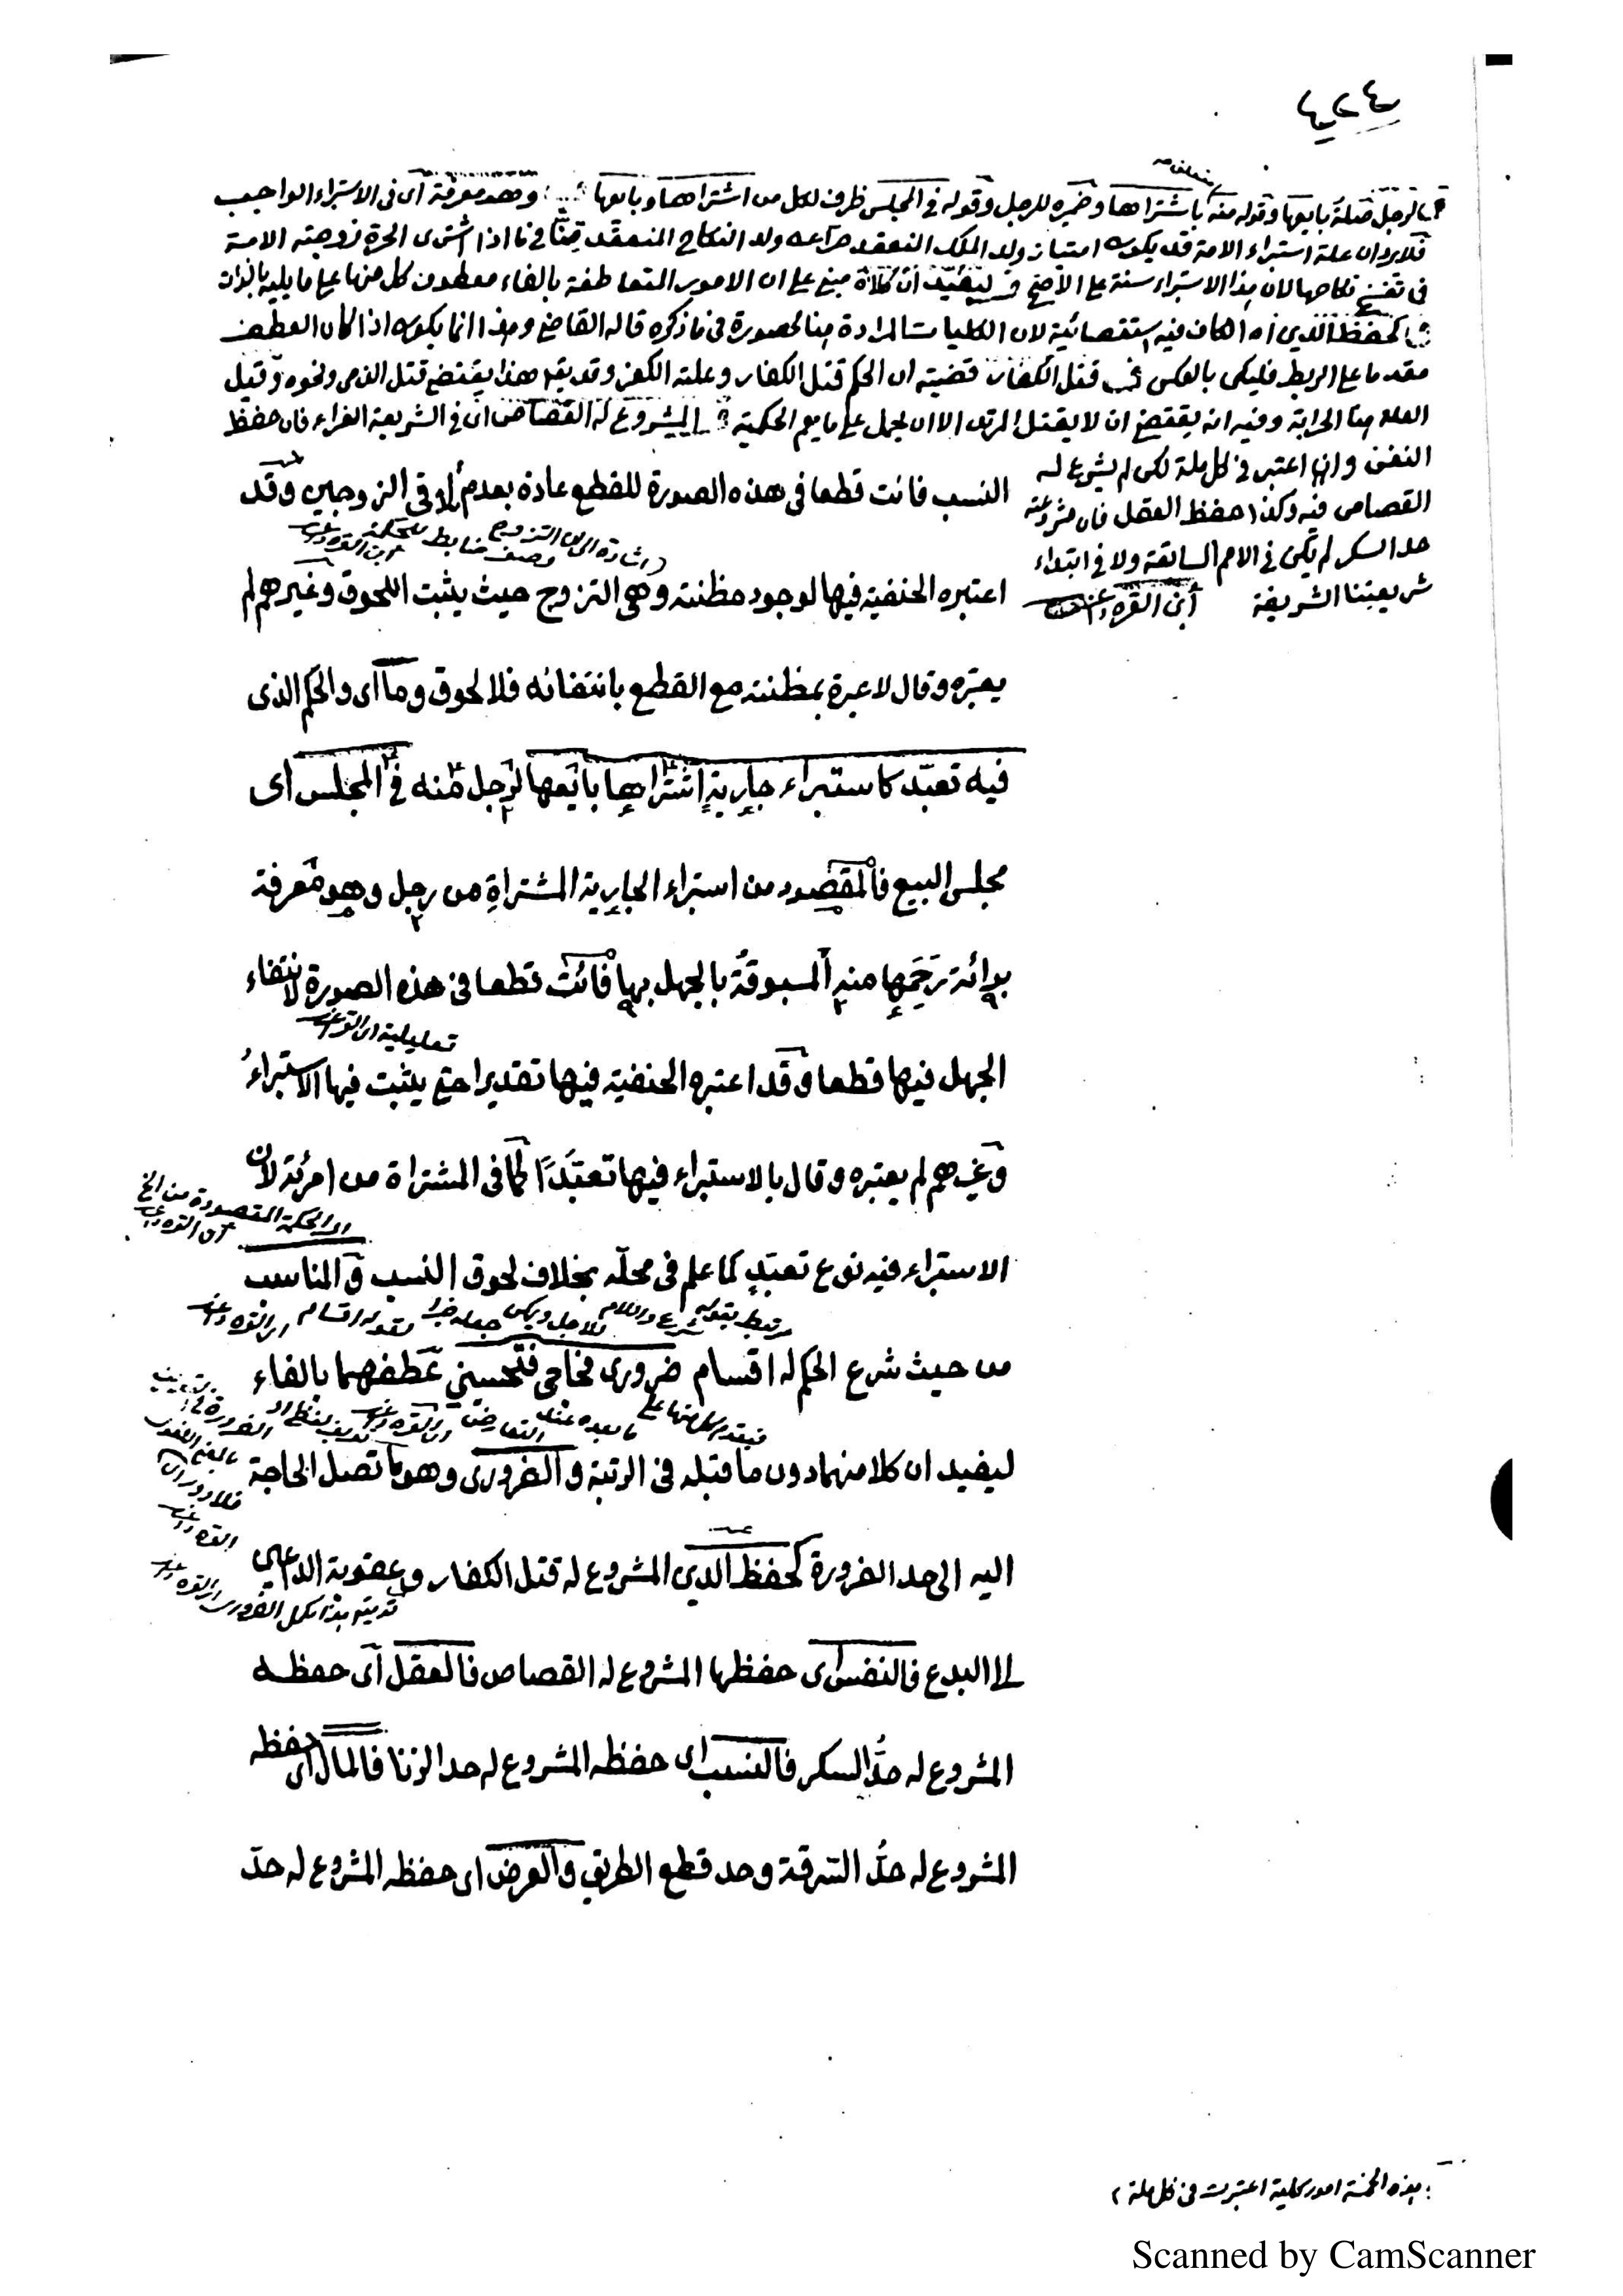 ٤٢٤
لرجل صلة بايعها وقوله منه باشتراها وضميره للرجل وقوله في المجلس ظرف لكل من اشتراها وبايعها وهو معرفة اى فى الاستبراء الواجب
فلا يرد ان علة استبراء الامة قد يكون امتياز ولد الملك المنعقد عن ولد النكاح المنعقد فيما اذا اشترى الحرة زوجته الامة
فى نكاحها لان هذا الاستبراء سنة على الاصح ليفيد ان كلا مبنى على ان الامور المتعاطفة بالفاء معطوف كل منها على ما يليه
كحفظ الدين الكاف فيه استقصائية لان الكليات المرادة هنا محصورة فى ما ذكره قاله القاضى وهذا انما يكون اذا كان العطف
مقدما على الربط فليكن بالعكس قتل الكفار قضيته ان الحكم قتل الكفار وعلته الكفر وقد يقال هذا يقتضى قتل الذمى ونحوه وقيل
العلة هنا الحرابة وفيه انه يقتضى ان لا يقتل المرتد الا ان يحمل على ما يعم الحكمية المشروع له القصاص اى فى الشريعة الغراء فان حفظ
النفس وان اعتبر فى كل ملة لكن لم يشرع له
القصاص فيه وكذا حفظ العقل فان مشروعية
حد السكر لم تكن فى الامم السالفة ولا فى ابتداء
شريعتنا الشريفة ابن القره داغى
النسب فائت قطعا فى هذه الصورة للقطع عادة بعدم تلاقى الزوجين وقد
اشارة الى ان التزوج وصف ضابط للحكمة ابن القره داغى
اعتبره الحنفية فيها لوجود مظنته وهى التزوج حيث يثبت اللحوق وغيرهم لم
يعتبره وقال لا عبرة بمظنته مع القطع بانتفائه فلا لحوق وما اى والحكم الذى
فيه تعبد كاستبراء جارية اشتراها بايعها لرجل منه فى المجلس اى
مجلس البيع فالمقصود من استبراء الجارية المشتراة من رجل وهو معرفة
برائة رحمها منه المسبوقة بالجهل بها فائت قطعا فى هذه الصورة لانتفاء
تعليلية ابن القره داغى
الجهل فيها قطعا وقد اعتبره الحنفية فيها تقديرا حتى يثبت فيها الاستبراء
وغيرهم لم يعتبره وقال بالاستبراء فيها تعبدا كما فى المشتراة من امرئة لان
اى الحكمة المقصودة من الخ ابن القره داغى
الاستبراء فيه نوع تعبد كما علم فى محله بخلاف لحوق النسب والمناسب
من حيث شرع الحكم له اقسام ضرورى فحاجى فتحسينى عطفهما بالفاء
ليفيد ان كلا منهما دون ما قبله فى الرتبة والضرورى وهو ما تصل الحاجة
اليه الى حد الضرورة كحفظ الدين المشروع له قتل الكفار وعقوبة الداعى
الى البدع فالنفس اى حفظها المشروع له القصاص فالعقل اى حفظه
المشروع له حد السكر فالنسب اى حفظه المشروع له حد الزنا فالمال اى حفظه
المشروع له حد السرقة وحد قطع الطريق والعرض اى حفظه المشروع له حد
هذه الخمسة امور كلية اعتبرت فى كل ملة
Scanned by CamScanner